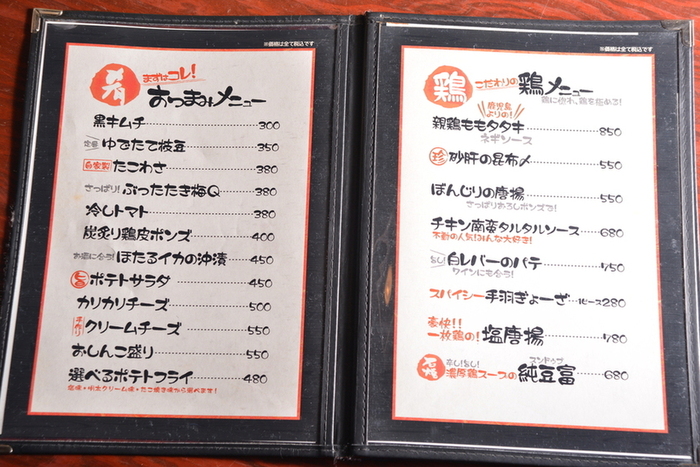 ※価格は全て税込です
肴 まずはコレ!
おつまみメニュー
黒キムチ 300
定番 ゆでたて枝豆 350
自家製 たこわさ 380
さっぱり! ぶったたき梅Q 380
冷しトマト 380
炭炙り鶏皮ポンズ 400
お酒に合う! ほたるイカの沖漬 450
ポテトサラダ 450
カリカリチーズ 500
手作り クリームチーズ 550
おしんこ盛り 550
選べるポテトフライ 480
塩味・明太クリーム味・たこ焼き味から選べます!
※価格は全て税込です
鶏 こだわりの 鶏メニュー
鶏に惚れ、鶏を極める!
鹿児島よりの!
親鶏ももタタキ 850
ネギソース
珍 砂肝の昆布〆 550
ぼんじりの唐揚 550
さっぱりおろしポンズで!
チキン南蛮タルタルソース 680
不動の人気!みんな大好き!
旨い! 白レバーのパテ 750
ワインにも合う!
スパイシー手羽ぎょーざ 1ピース280
豪快!!
一枚鶏の! 塩唐揚 780
辛し!旨し! スンドゥブ
濃厚鶏スープの 純豆富 680